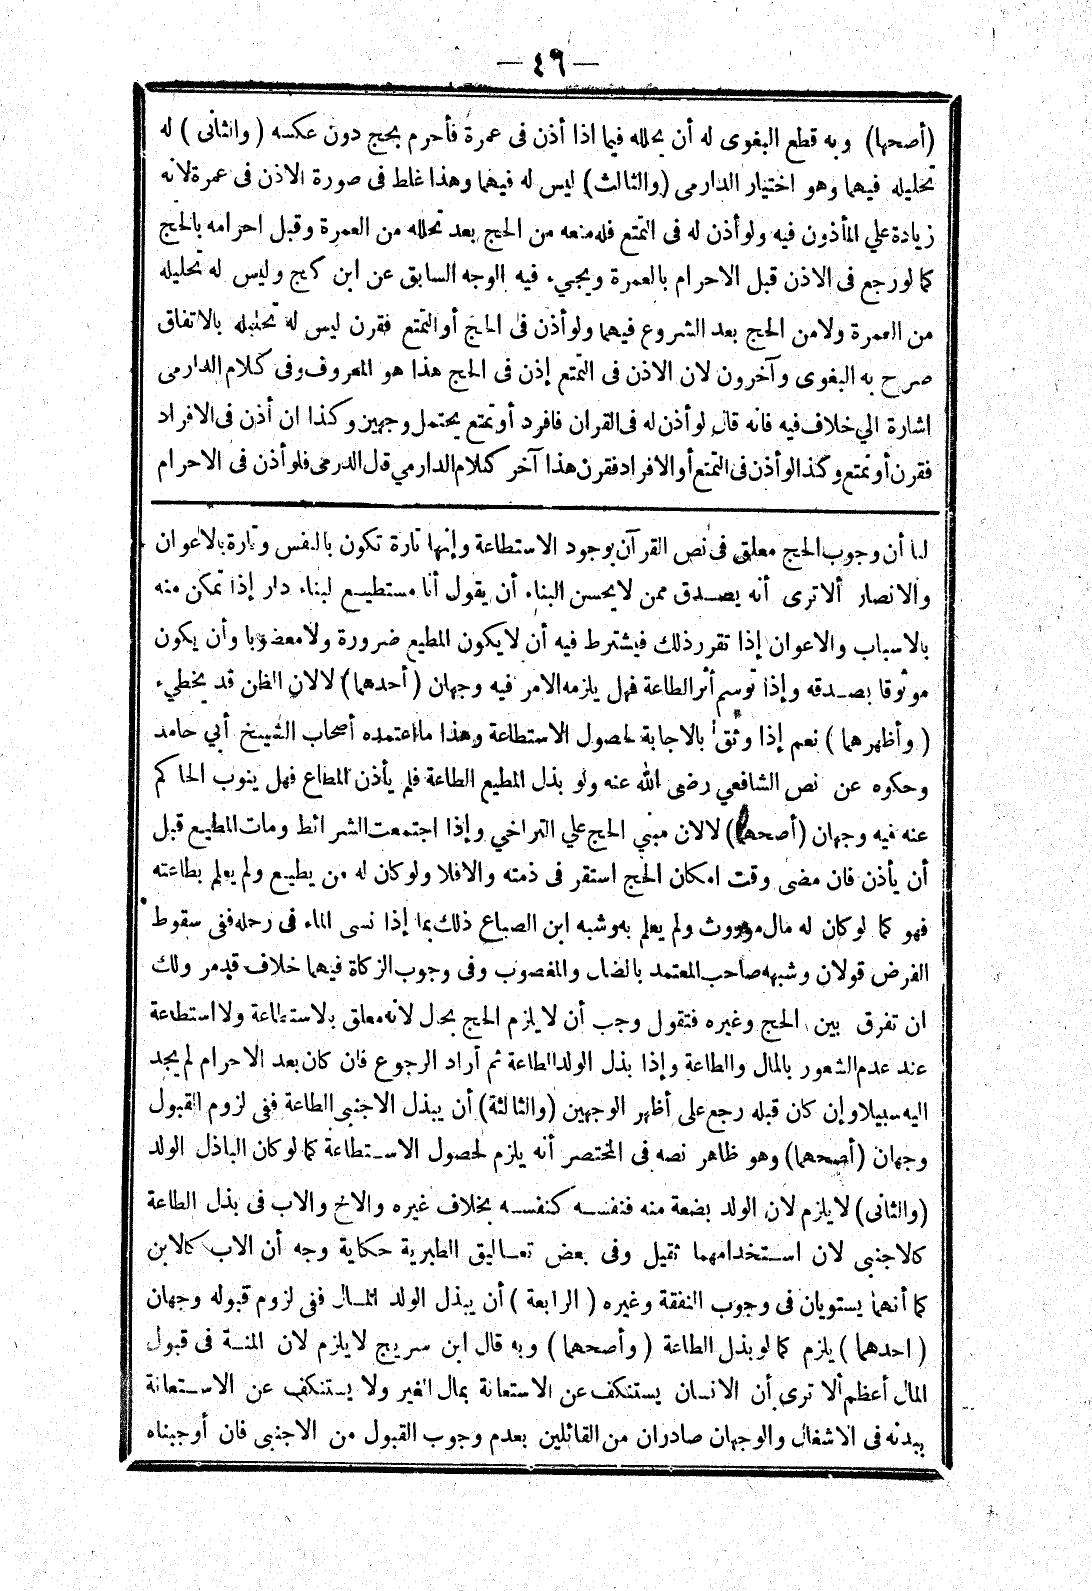 — ٤٦ —
(أصحها) وبه قطع البغوى له أن يحلله فيما اذا أذن فى عمرة فأحرم بحج دون عكسه ( والثانى ) له
تحليله فيهما وهو اختيار الدارمى (والثالث) ليس له فيهما وهذا غلط فى صورة الاذن فى عمرة لانه
زيادة علي المأذون فيه ولو أذن له فى التمتع فله منعه من الحج بعد تحلله من العمرة وقبل احرامه بالحج
كما لو رجع فى الاذن قبل الاحرام بالعمرة ويجيء فيه الوجه السابق عن ابن كج وليس له تحليله
من العمرة ولا من الحج بعد الشروع فيهما ولو أذن فى الحج أو التمتع فقرن ليس له تحليله بالاتفاق
صرح به البغوى وآخرون لان الاذن فى التمتع إذن فى الحج هذا هو المعروف وفى كلام الدارمى
اشارة الي خلاف فيه فانه قال لو أذن له فى القران فافرد أو تمتع يحتمل وجهين وكذا ان أذن فى الافراد
فقرن أو تمتع وكذا لو أذن فى التمتع أو الافراد فقرن هذا آخر كلام الدارمي قال الدرمى فلو أذن فى الاحرام
لنا أن وجوب الحج معلق فى نص القرآن بوجود الاستطاعة وإنها تارة تكون بالنفس وتارة بالاعوان
والانصار ألا ترى أنه يصدق ممن لا يحسن البناء أن يقول أنا مستطيع لبناء دار إذا تمكن منه
بالاسباب والاعوان إذا تقرر ذلك فيشترط فيه أن لا يكون المطيع ضرورة ولا معضوبا وأن يكون
موثوقا بصدقه وإذا توسم أثر الطاعة فهل يلزمه الامر فيه وجهان (أحدهما) لا لان الظن قد يخطيء
( وأظهرهما ) نعم إذا وثق بالاجابة لحصول الاستطاعة وهذا ما اعتمده أصحاب الشيخ أبي حامد
وحكوه عن نص الشافعي رضى الله عنه ولو بذل المطيع الطاعة فلم يأذن المطاع فهل ينوب الحاكم
عنه فيه وجهان (أصحهما) لا لان مبني الحج علي التراخي وإذا اجتمعت الشرائط ومات المطيع قبل
أن يأذن فان مضى وقت امكان الحج استقر فى ذمته والا فلا ولو كان له من يطيع ولم يعلم بطاعته
فهو كما لو كان له مال موروث ولم يعلم به وشبه ابن الصباغ ذلك بما إذا نسى الماء فى رحله ففى سقوط
الفرض قولان وشبهه صاحب المعتمد بالضال والمغصوب وفى وجوب الزكاة فيهما خلاف قد مر ولك
ان تفرق بين الحج وغيره فتقول وجب أن لا يلزم الحج بحال لانه معلق بالاستطاعة ولا استطاعة
عند عدم الشعور بالمال والطاعة وإذا بذل الولد الطاعة ثم أراد الرجوع فان كان بعد الاحرام لم يجد
اليه سبيلا وإن كان قبله رجع على أظهر الوجهين (والثالثة) أن يبذل الاجنبى الطاعة ففى لزوم القبول
وجهان (أصحهما) وهو ظاهر نصه فى المختصر أنه يلزم لحصول الاستطاعة كما لو كان الباذل الولد
(والثانى) لا يلزم لان الولد بضعة منه فنفسه كنفسه بخلاف غيره والاخ والاب فى بذل الطاعة
كالاجنبى لان استخدامهما ثقيل وفى بعض تعاليق الطبرية حكاية وجه أن الاب كالابن
كما أنهما يستويان فى وجوب النفقة وغيره ( الرابعة ) أن يبذل الولد المال ففى لزوم قبوله وجهان
( احدهما ) يلزم كما لو بذل الطاعة ( وأصحهما ) وبه قال ابن سريج لا يلزم لان المنة فى قبول
المال أعظم ألا ترى أن الانسان يستنكف عن الاستعانة بمال الغير ولا يستنكف عن الاستعانة
ببدنه فى الاشغال والوجهان صادران من القائلين بعدم وجوب القبول من الاجنبى فان أوجبناه